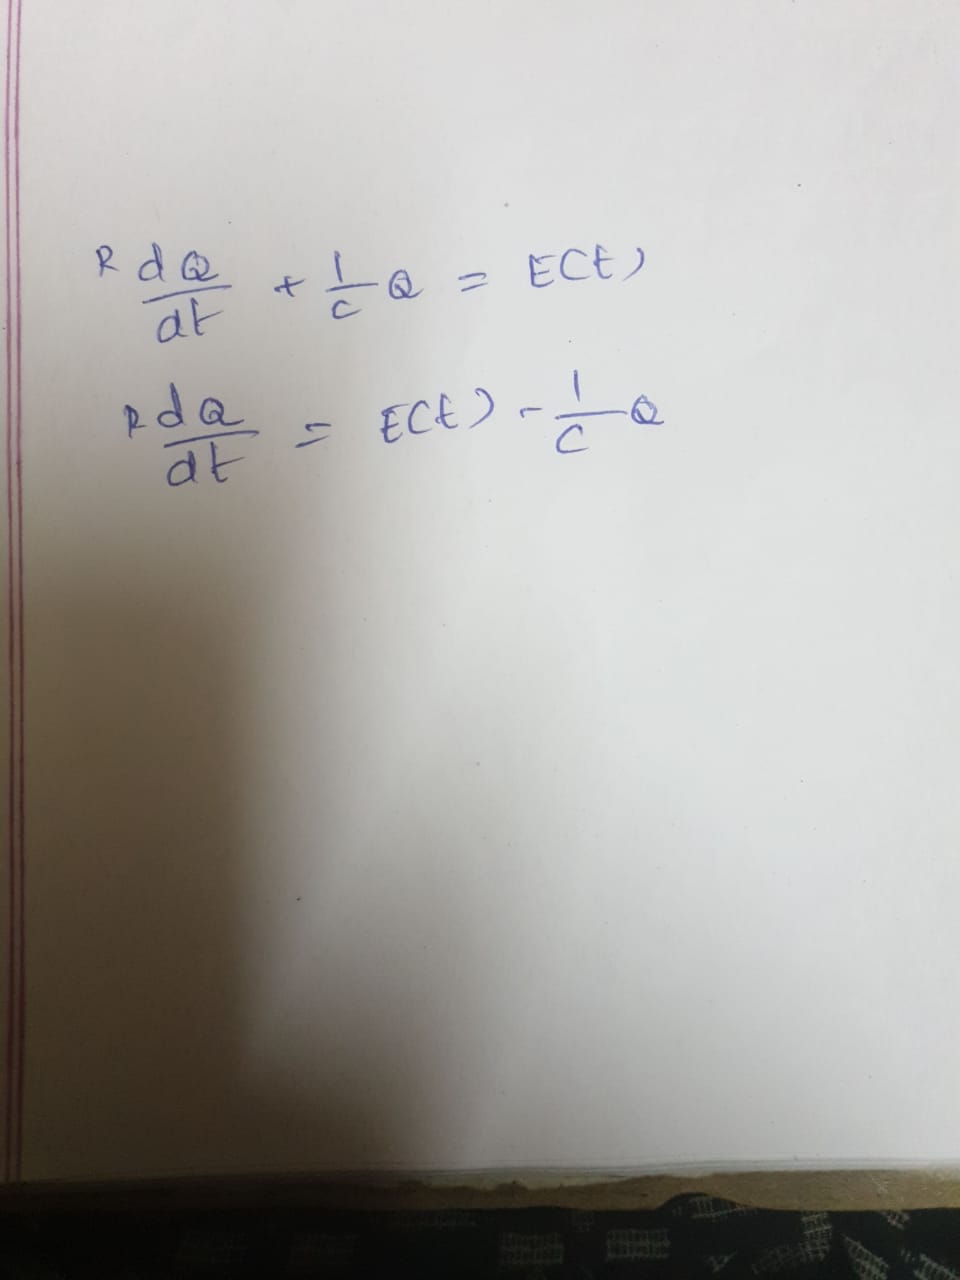 R dQ/dt + 1/C Q = E(t)
R dQ/dt = E(t) - 1/C Q